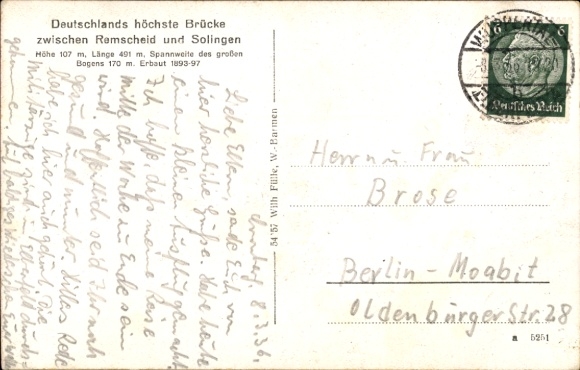 Deutschlands höchste Brücke
zwischen Remscheid und Solingen
Höhe 107 m, Länge 491 m, Spannweite des großen
Bogens 170 m. Erbaut 1893-97
Sonntag, 8.3.36.
Liebe Eltern, sende Euch von
hier herzliche Grüße. Habe heute
einen kleinen Ausflug gemacht.
Ich hoffe daß meine Reise
mitte der Woche zu Ende sein
wird. Hoffentlich seid Ihr noch
gesund und munter. Hitlers Rede
habe ich hier auch gehört. Die
Militärzüge sind in Elberfeld durch-
gekommen.
54'57 Wilh. Fülle, W.-Barmen
WUPPERTAL
6 6
Deutsches Reich
Herrn u. Frau
Brose
Berlin-Moabit
Oldenburger Str. 28
a 5251